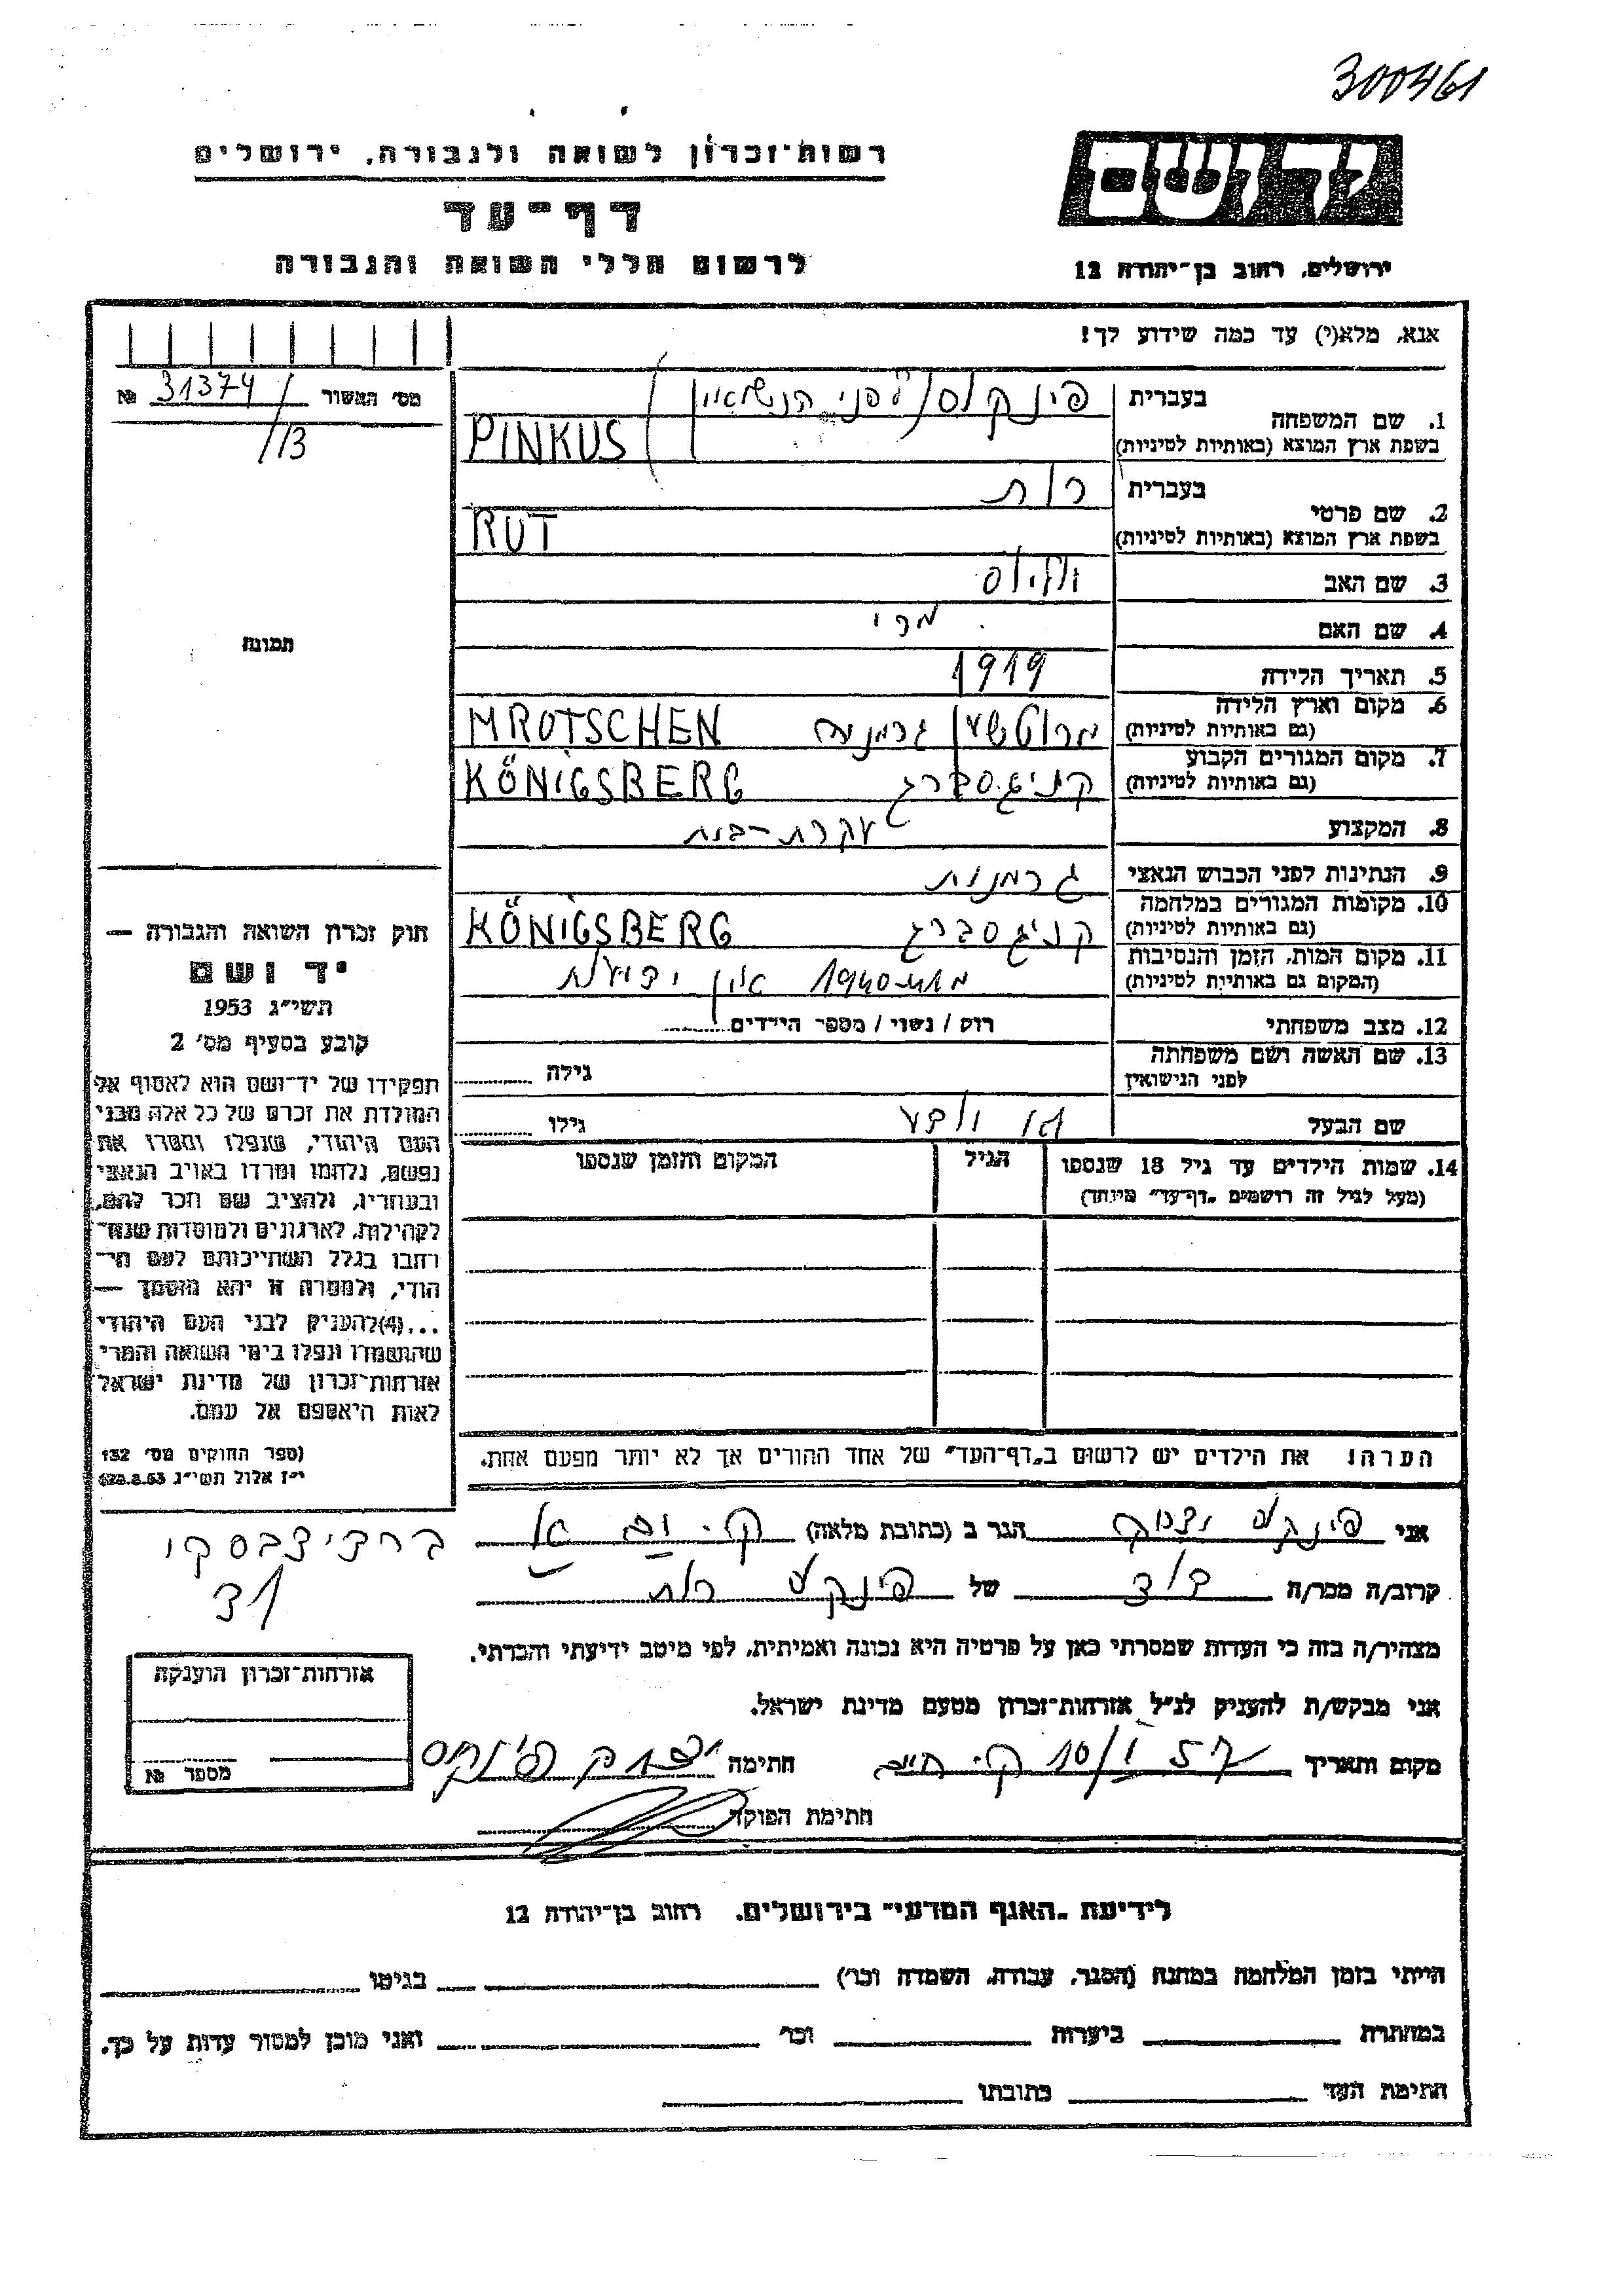 300461
יד ושם
רשות־זכרון לשואה ולגבורה, ירושלים
דף־עד
לרשום חללי השואה והגבורה
ירושלים, רחוב בן־יהודה 12
אנא, מלא(י) עד כמה שידוע לך!
מס׳ המשור 31374/ №
/13
1. שם המשפחה בעברית פינקוס (לפני הנשואין)
בשפת ארץ המוצא (באותיות לטיניות) PINKUS
2. שם פרטי בעברית רות
בשפת ארץ המוצא (באותיות לטיניות) RUT
3. שם האב יוליוס
4. שם האם מרי
5. תאריך הלידה 1919
6. מקום וארץ הלידה (גם באותיות לטיניות) מרוטשן גרמניה MROTSCHEN
7. מקום המגורים הקבוע (גם באותיות לטיניות) קניגסברג KÖNIGSBERG
8. המקצוע עקרת־בית
9. הנתינות לפני הכבוש הנאצי גרמנית
10. מקומות המגורים במלחמה (גם באותיות לטיניות) קניגסברג KÖNIGSBERG
11. מקום המות, הזמן והנסיבות (המקום גם באותיות לטיניות) מ־1940 אין ידיעות
12. מצב משפחתי רוק / נשוי / מספר הילדים
13. שם האשה ושם משפחתה לפני הנישואין גילה
שם הבעל גילו
14. שמות הילדים עד גיל 18 שנספו הגיל המקום והזמן שנספו
(מעל לגיל זה רושמים „דף־עד״ מיוחד)
תמונה
חוק זכרון השואה והגבורה —
יד ושם
תשי״ג 1953
קובע בסעיף מס׳ 2
תפקידו של יד־ושם הוא לאסוף אל
המולדת את זכרם של כל אלה מבני
העם היהודי, שנפלו ומסרו את
נפשם, נלחמו ומרדו באויב הנאצי
ובעוזריו, ולהציב שם וזכר להם,
לקהילות, לארגונים ולמוסדות שנח־
רבו בגלל השתייכותם לעם הי־
הודי, ולמטרה זו יהא מוסמך —
...(4)להעניק לבני העם היהודי
שהושמדו ונפלו בימי השואה והמרי
אזרחות־זכרון של מדינת ישראל
לאות היאספם אל עמם.
(ספר החוקים מס׳ 132
י״ז אלול תשי״ג 28.8.53)
הערה! את הילדים יש לרשום ב„דף־העד״ של אחד ההורים אך לא יותר מפעם אחת.
אני פינקוס יצחק הגר ב (כתובת מלאה) ק. ים ברדיצבסקי
31
קרוב/ה מכר/ה דוד של פינקוס רות
מצהיר/ה בזה כי העדות שמסרתי כאן על פרטיה היא נכונה ואמיתית, לפי מיטב ידיעתי והכרתי.
אני מבקש/ת להעניק לנ״ל אזרחות־זכרון מטעם מדינת ישראל.
מקום ותאריך ק. חיים 10/I 57 חתימה יצחק פינקוס
חתימת הפוקד
אזרחות־זכרון הוענקה
מספר №
לידיעת „האגף המדעי״ בירושלים, רחוב בן־יהודה 12
הייתי בזמן המלחמה במחנה (הסגר, עבודה, השמדה וכו׳) בגיטו
במחתרת ביערות וכו׳ ואני מוכן למסור עדות על כך.
חתימת העד כתובתו